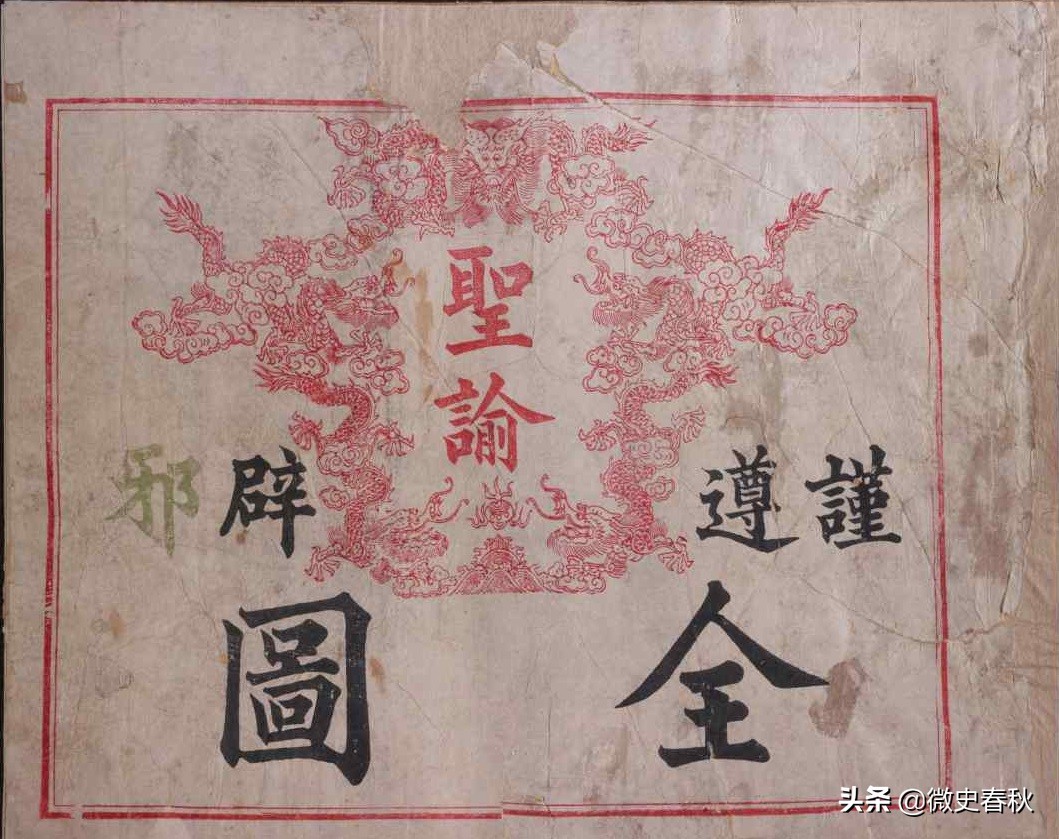 謹遵聖諭辟邪
全圖
头条 @微史春秋